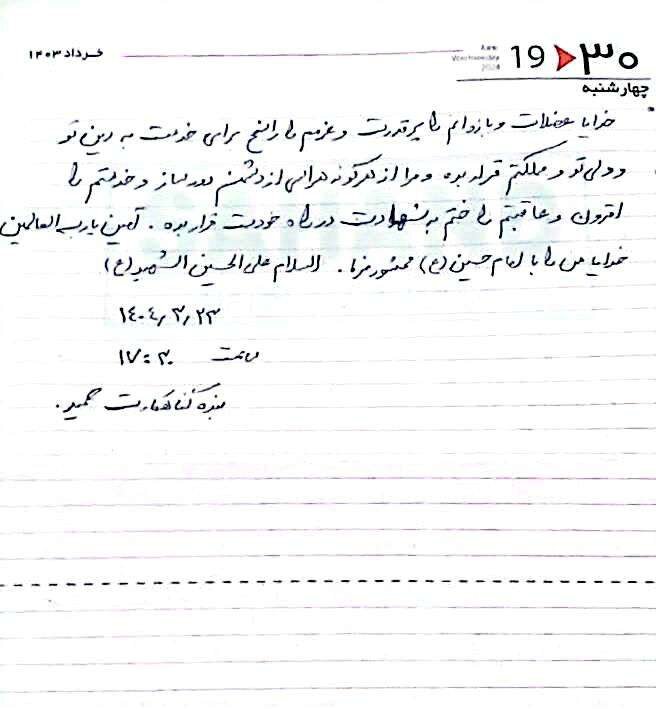 خرداد ۱۴۰۳
۳۰ 19 June
Wednesday
2024
چهارشنبه
خدایا عضلات و بازوانم را پرقدرت و عزمم را راسخ برای خدمت به دین تو
و ولی تو و مملکتم قرار بده و مرا از هرگونه هراس از دشمن دور بساز و خدمتم را
افزون و عاقبتم را ختم به شهادت در راه خودت قرار بده . آمین یا رب العالمین
خدایا من را با امام حسین (ع) محشور فرما . السلام علی الحسین الشهید (ع)
۱۴۰۴/۳/۲۳
ساعت ۱۷:۳۰
بنده گناهکارت حمید .